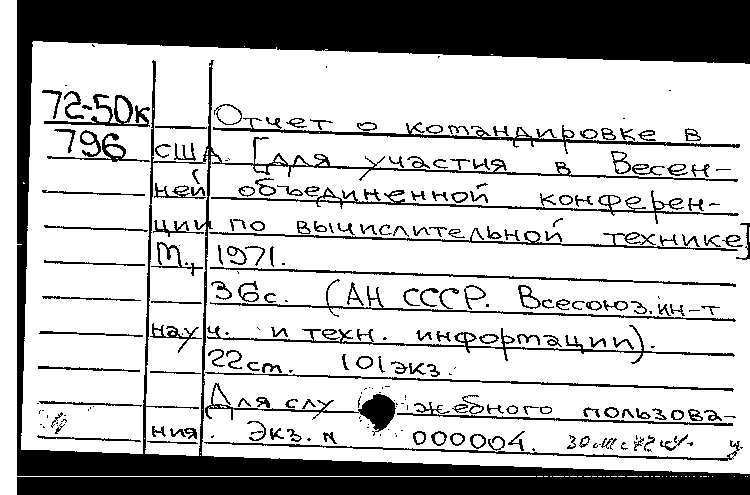 72-50к Отчет о командировке в
796 США. [для участия в Весен-
ней объединенной конферен-
ции по вычислительной технике]
М., 1971.
36с. (АН СССР. Всесоюз. ин-т
науч. и техн. информации).
22см. 101экз.
Для служебного пользова-
ния. Экз. N 000004.